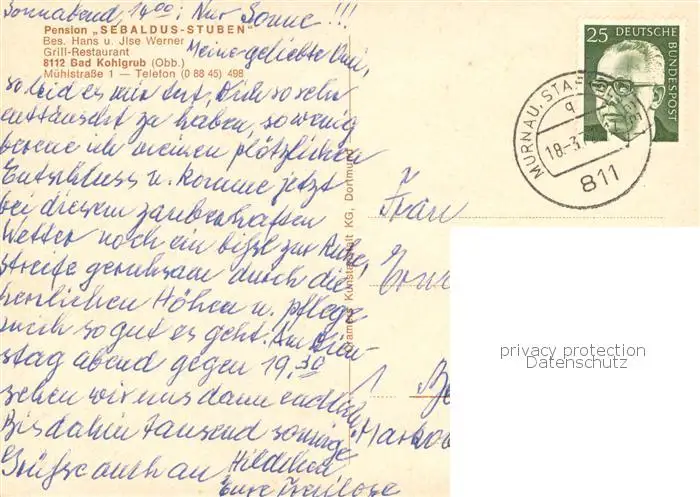 Sonnabend, 14.00: Nur Sonne!!!
Pension „SEBALDUS-STUBEN"
Bes. Hans u. Jlse Werner
Grill-Restaurant
8112 Bad Kohlgrub (Obb.)
Mühlstraße 1 — Telefon (0 88 45) 498
Meine geliebte
so leid es mir tut, Dich so sehr
enttäuscht zu haben, so wenig
bereue ich meinen plötzlichen
Entschluss u. komme jetzt
bei diesem zauberhaften
Wetter noch ein bissl zur Ruhe,
streife geruhsam durch die
herrlichen Höhen u. pflege
mich so gut es geht. Am Dien-
stag abend gegen 19.30
sehen wir uns dann endlich
Bis dahin tausend sonnige
Grüße auch an
Eure
Kunstanstalt KG, Dortmund
25 DEUTSCHE
BUNDESPOST
MURNAU, STAFFELSEE
811
Frau
privacy protection
Datenschutz